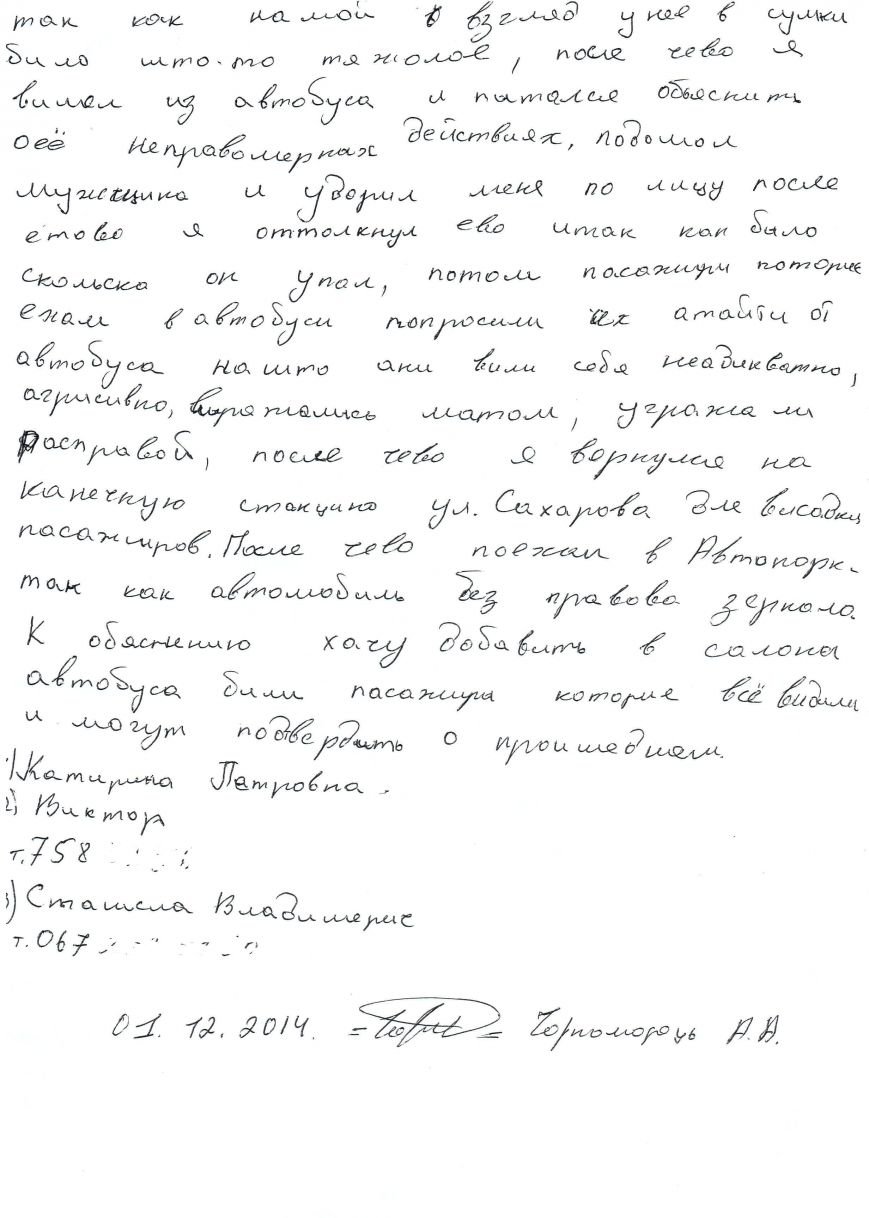 так как на мой взгляд у нея в сумки
било што-то тяжолое, после чево я
вишел из автобуса и питался обьяснить
оеё неправомерних действиях, подошол
мужщина и ударил меня по лицу после
етово я оттолкнул ево итак как било
скольска он упал, потом пасажири которие
ехали в автобуси попросили их атайти от
автобуса нашто ани вили себя неадикватно,
агрисивно, виражались матом, угражали
расправой, после чево я вернулся на
канечную станцию ул. Сахарова для висадки
пасажиров. После чево поехал в Автопарк.
так как автомобиль без правова зеркала.
К обяснению хачу добавить в салоны
автобуса били пасажири которие всё видили
и могут подвердить о происшедшем.
1) Катирина Петровна.
2) Виктор
т.758
3) Станисла Владимерич
т.067
01. 12. 2014. Чорноморець А.А.